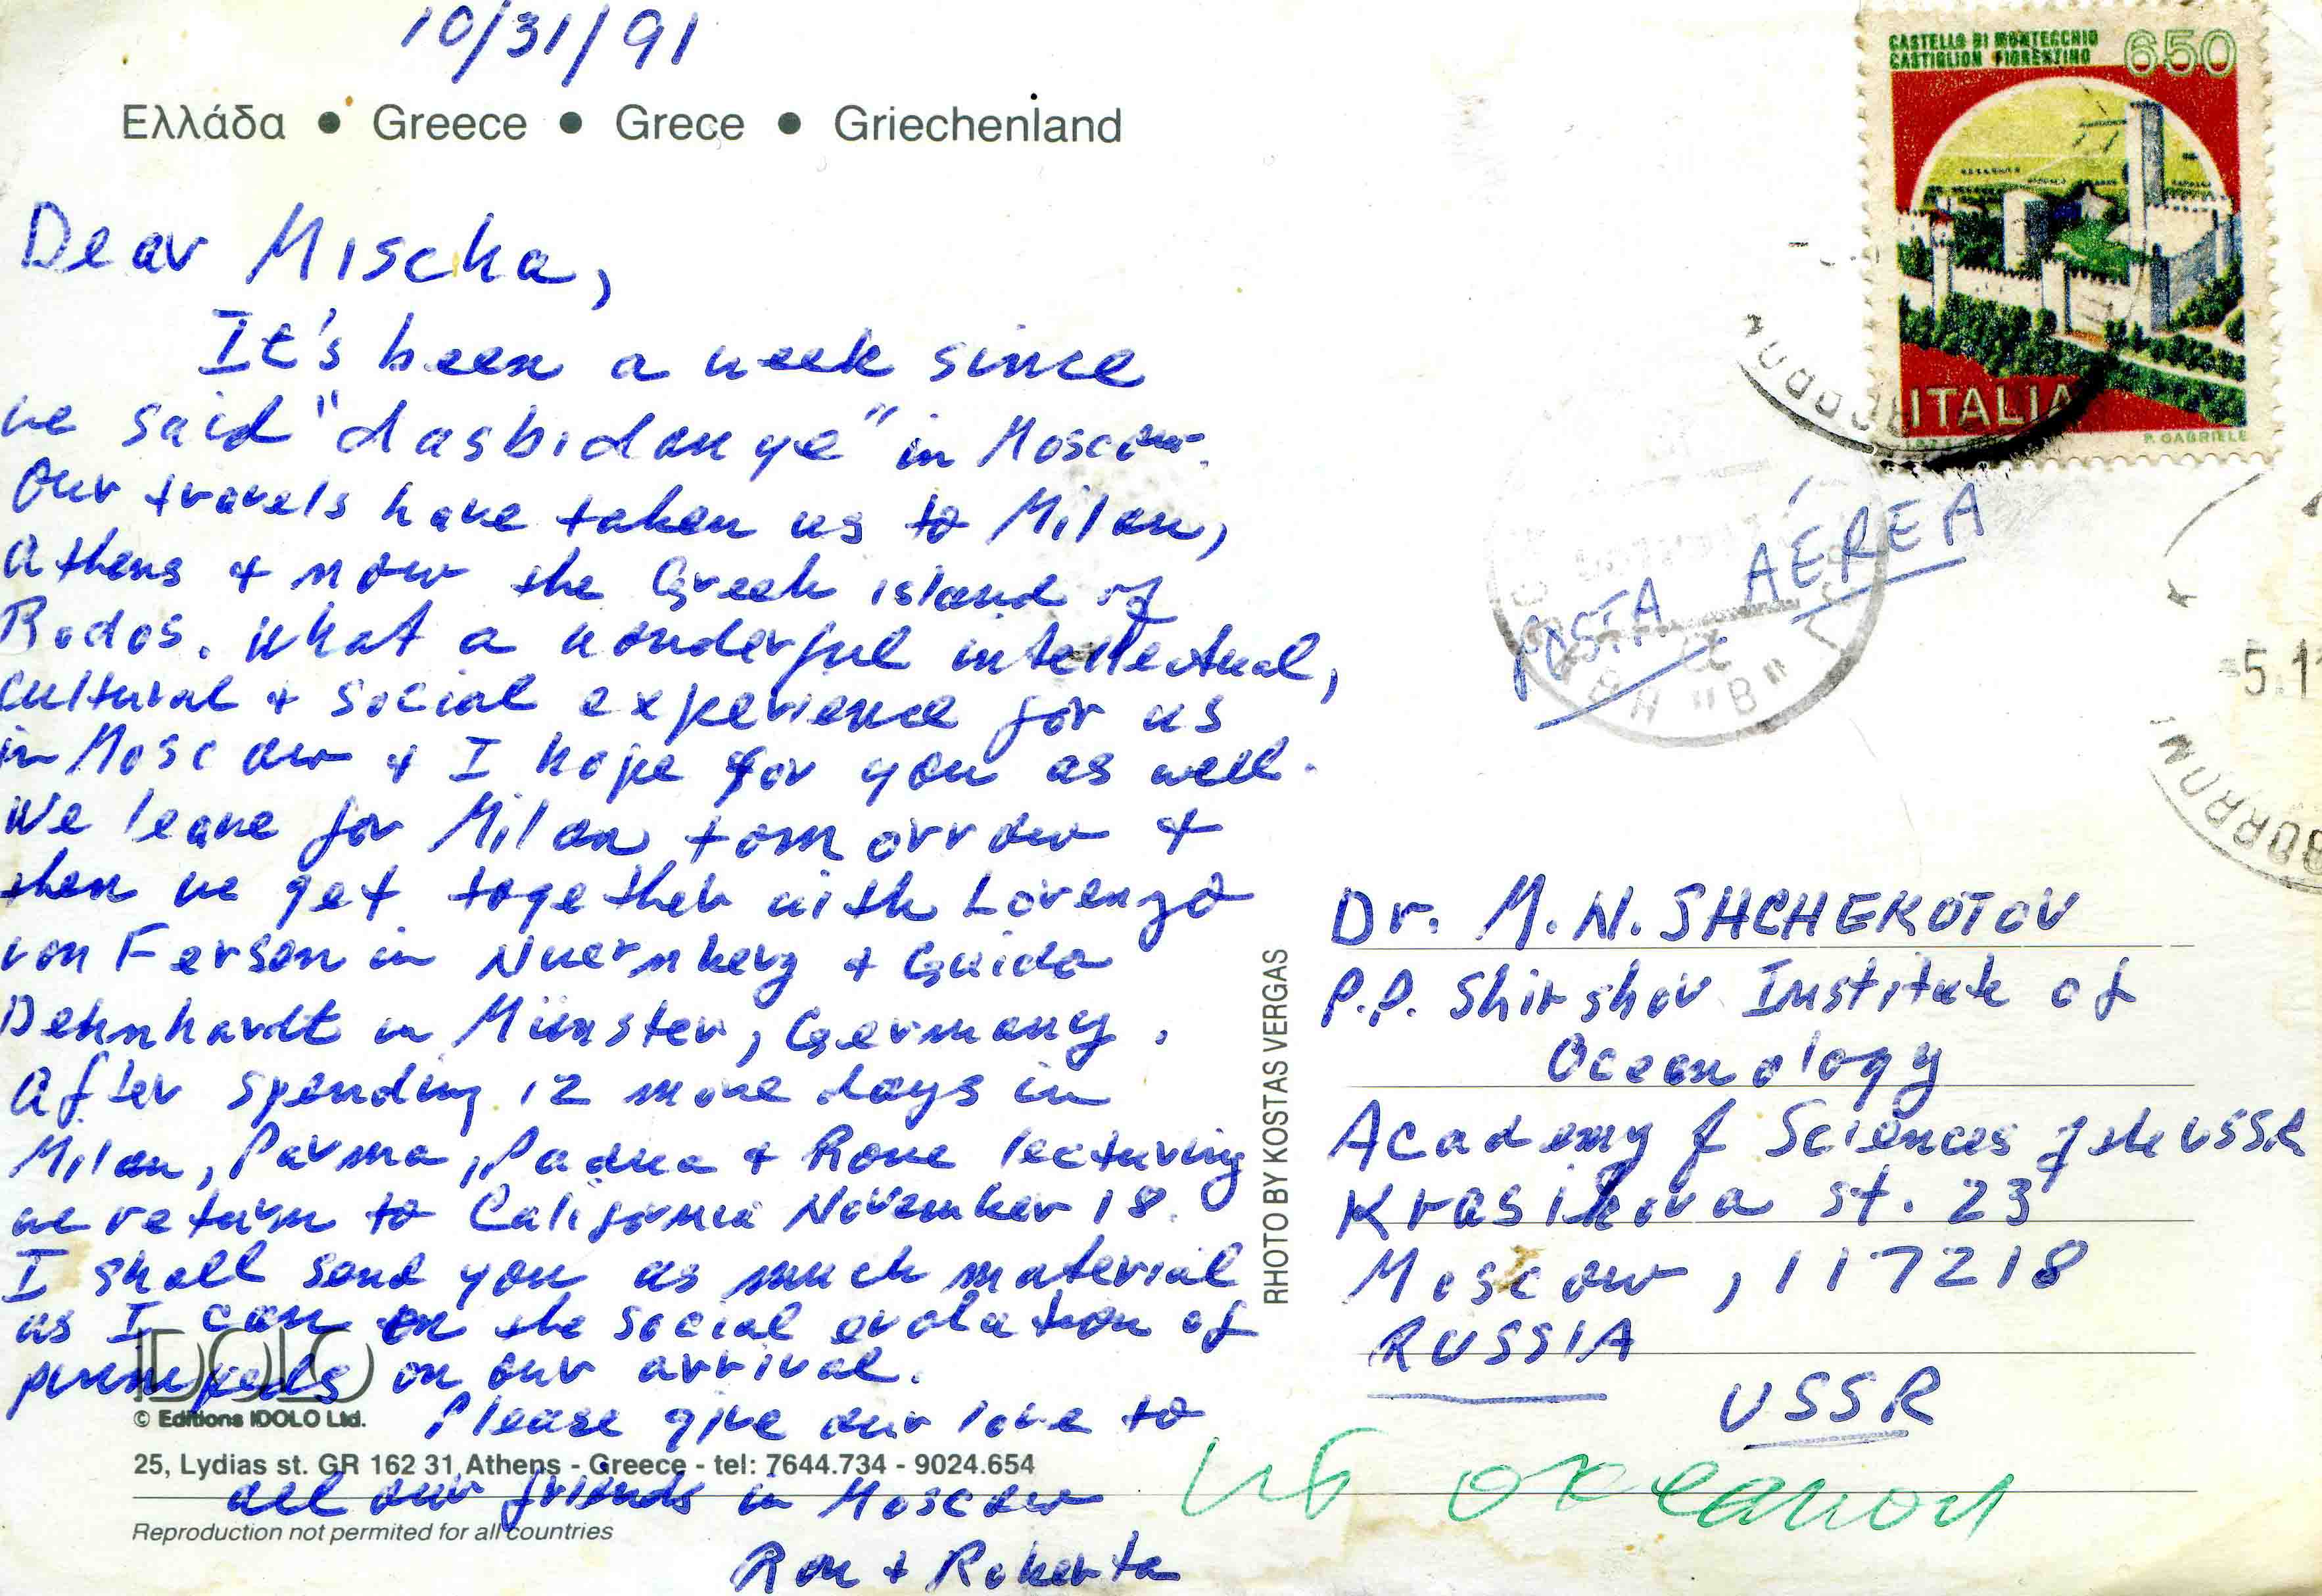 10/31/91
Ελλάδα • Greece • Grece • Griechenland
Dear Mischa,
It's been a week since
we said "dasbidanye" in Moscow.
Our travels have taken us to Milan,
Athens & now the Greek island of
Rodos. What a wonderful intellectual,
cultural & social experience for us
in Moscow & I hope for you as well.
We leave for Milan tomorrow &
then we get together with Lorenzo
von Fersen in Nuernberg & Guido
Dehnhardt in Münster, Germany.
After spending 12 more days in
Milan, Parma, Padua & Rome lecturing
we return to California November 18.
I shall send you as much material
as I can on the social evolution of
pinnipeds on our arrival.
Please give our love to
all our friends in Moscow
Ron + Roberta
IDOLO
© Editions IDOLO Ltd.
25, Lydias st. GR 162 31 Athens - Greece - tel: 7644.734 - 9024.654
Reproduction not permited for all countries
RHOTO BY KOSTAS VERGAS
CASTELLO DI MONTECCHIO
CASTIGLION FIORENTINO
650
ITALIA
P. GABRIELE
POSTA AÉREA
Dr. M. N. SHCHEKOTOV
P.P. Shirshov Institute of
Oceanology
Academy of Sciences of the USSR
Krasikova st. 23
Moscow, 117218
RUSSIA
USSR